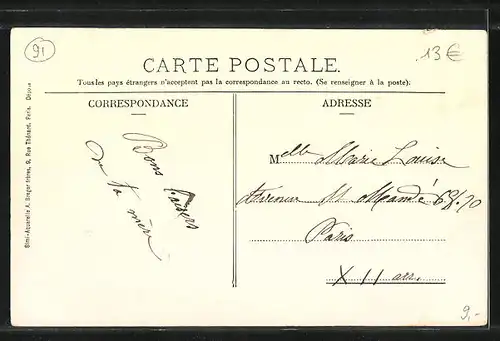 91
13€
CARTE POSTALE.
Tous les pays étrangers n'acceptent pas la correspondance au recto. (Se renseigner à la poste).
CORRESPONDANCE
ADRESSE
Bons baisers
de ta mère
Melle Marie Louise
Avenue St Mandé 68.70
Paris
XII arr.
9,-
Simi-Aquarelle A. Breger frères, 9, Rue Thénard, Paris. Déposé